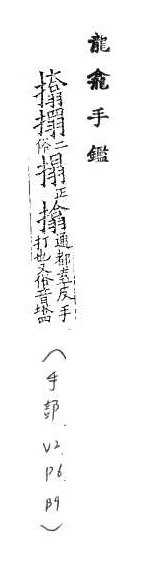 龍龕手鑑
二俗搨正通都盍反手打也又俗音塔
（手部. V2. P6. B9）